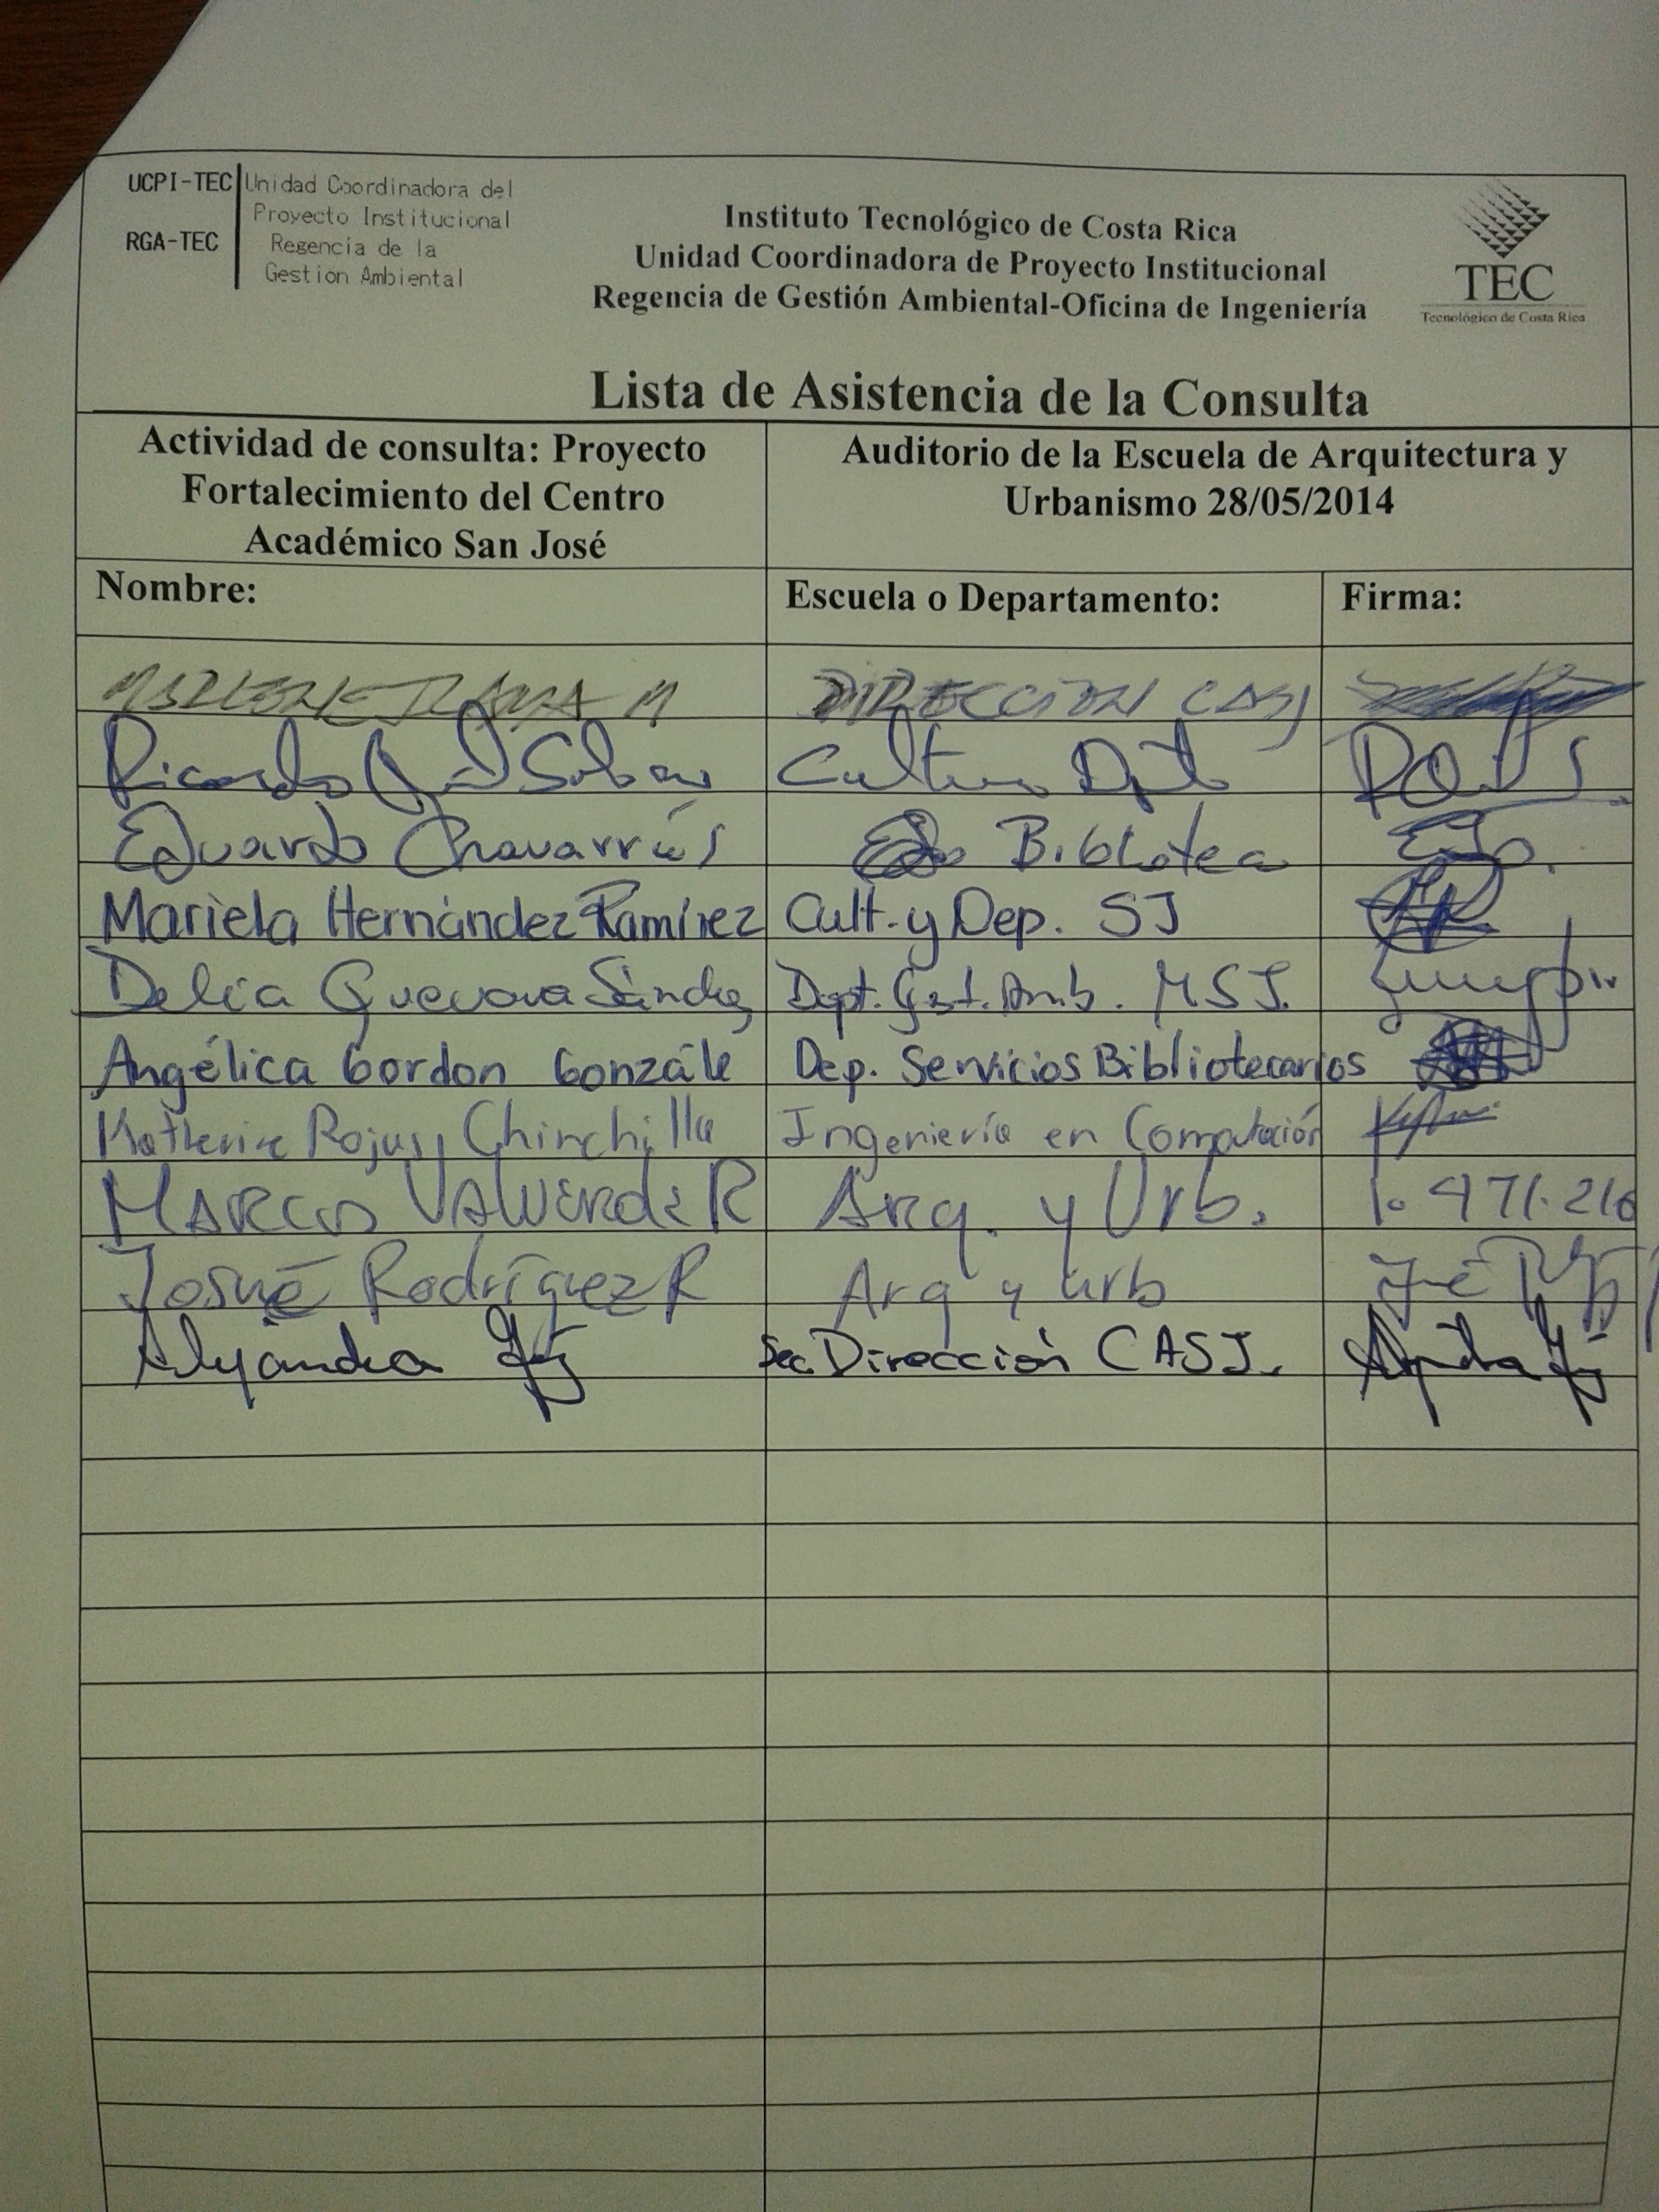 UCPI-TEC Unidad Coordinadora del
Proyecto Institucional
RGA-TEC Regencia de la
Gestion Ambiental
Instituto Tecnológico de Costa Rica
Unidad Coordinadora de Proyecto Institucional
Regencia de Gestión Ambiental-Oficina de Ingeniería
TEC
Tecnológico de Costa Rica
Lista de Asistencia de la Consulta
Actividad de consulta: Proyecto
Fortalecimiento del Centro
Académico San José
Auditorio de la Escuela de Arquitectura y
Urbanismo 28/05/2014
Nombre: Escuela o Departamento: Firma:
DIRECCION CASJ
Ricardo
Eduardo Chavarría Biblioteca
Mariela Hernández Ramírez Cult. y Dep. SJ
Delia Guevara Sánchez Dept. Gest. Amb. MSJ.
Angélica Gordon Gonzále Dep. Servicios Bibliotecarios
Katherine Rojas Chinchilla Ingeniería en Computación
Marcos Valverde R Arq. y Urb. 1.471.216
Josué Rodríguez R Arq y urb
Alejandra Sec. Dirección CASJ.